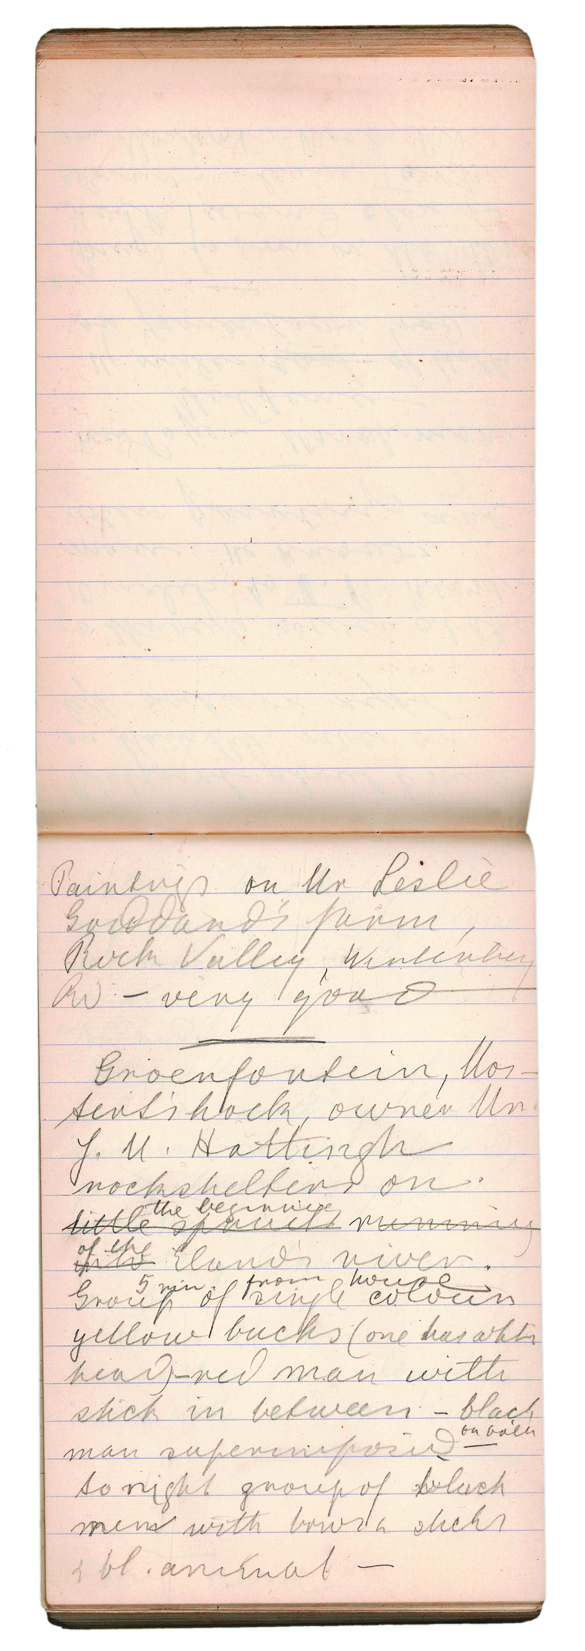 Paintings on Mr Leslie
Goddard's farm,
Rock Valley, Winterberg
Rd - very good
Groenfontein, Mos-
tertshoek, owner Mr.
J. M. Hattingh
rockshelters on
the beginning
little spruits running
of the
into Eland's river.
5 min. from house
Group of single colour
yellow bucks (one has white
head) - red man with
stick in between - black
on both
man superimposed -
to right group of black
men with bows & sticks
& bl. animal -